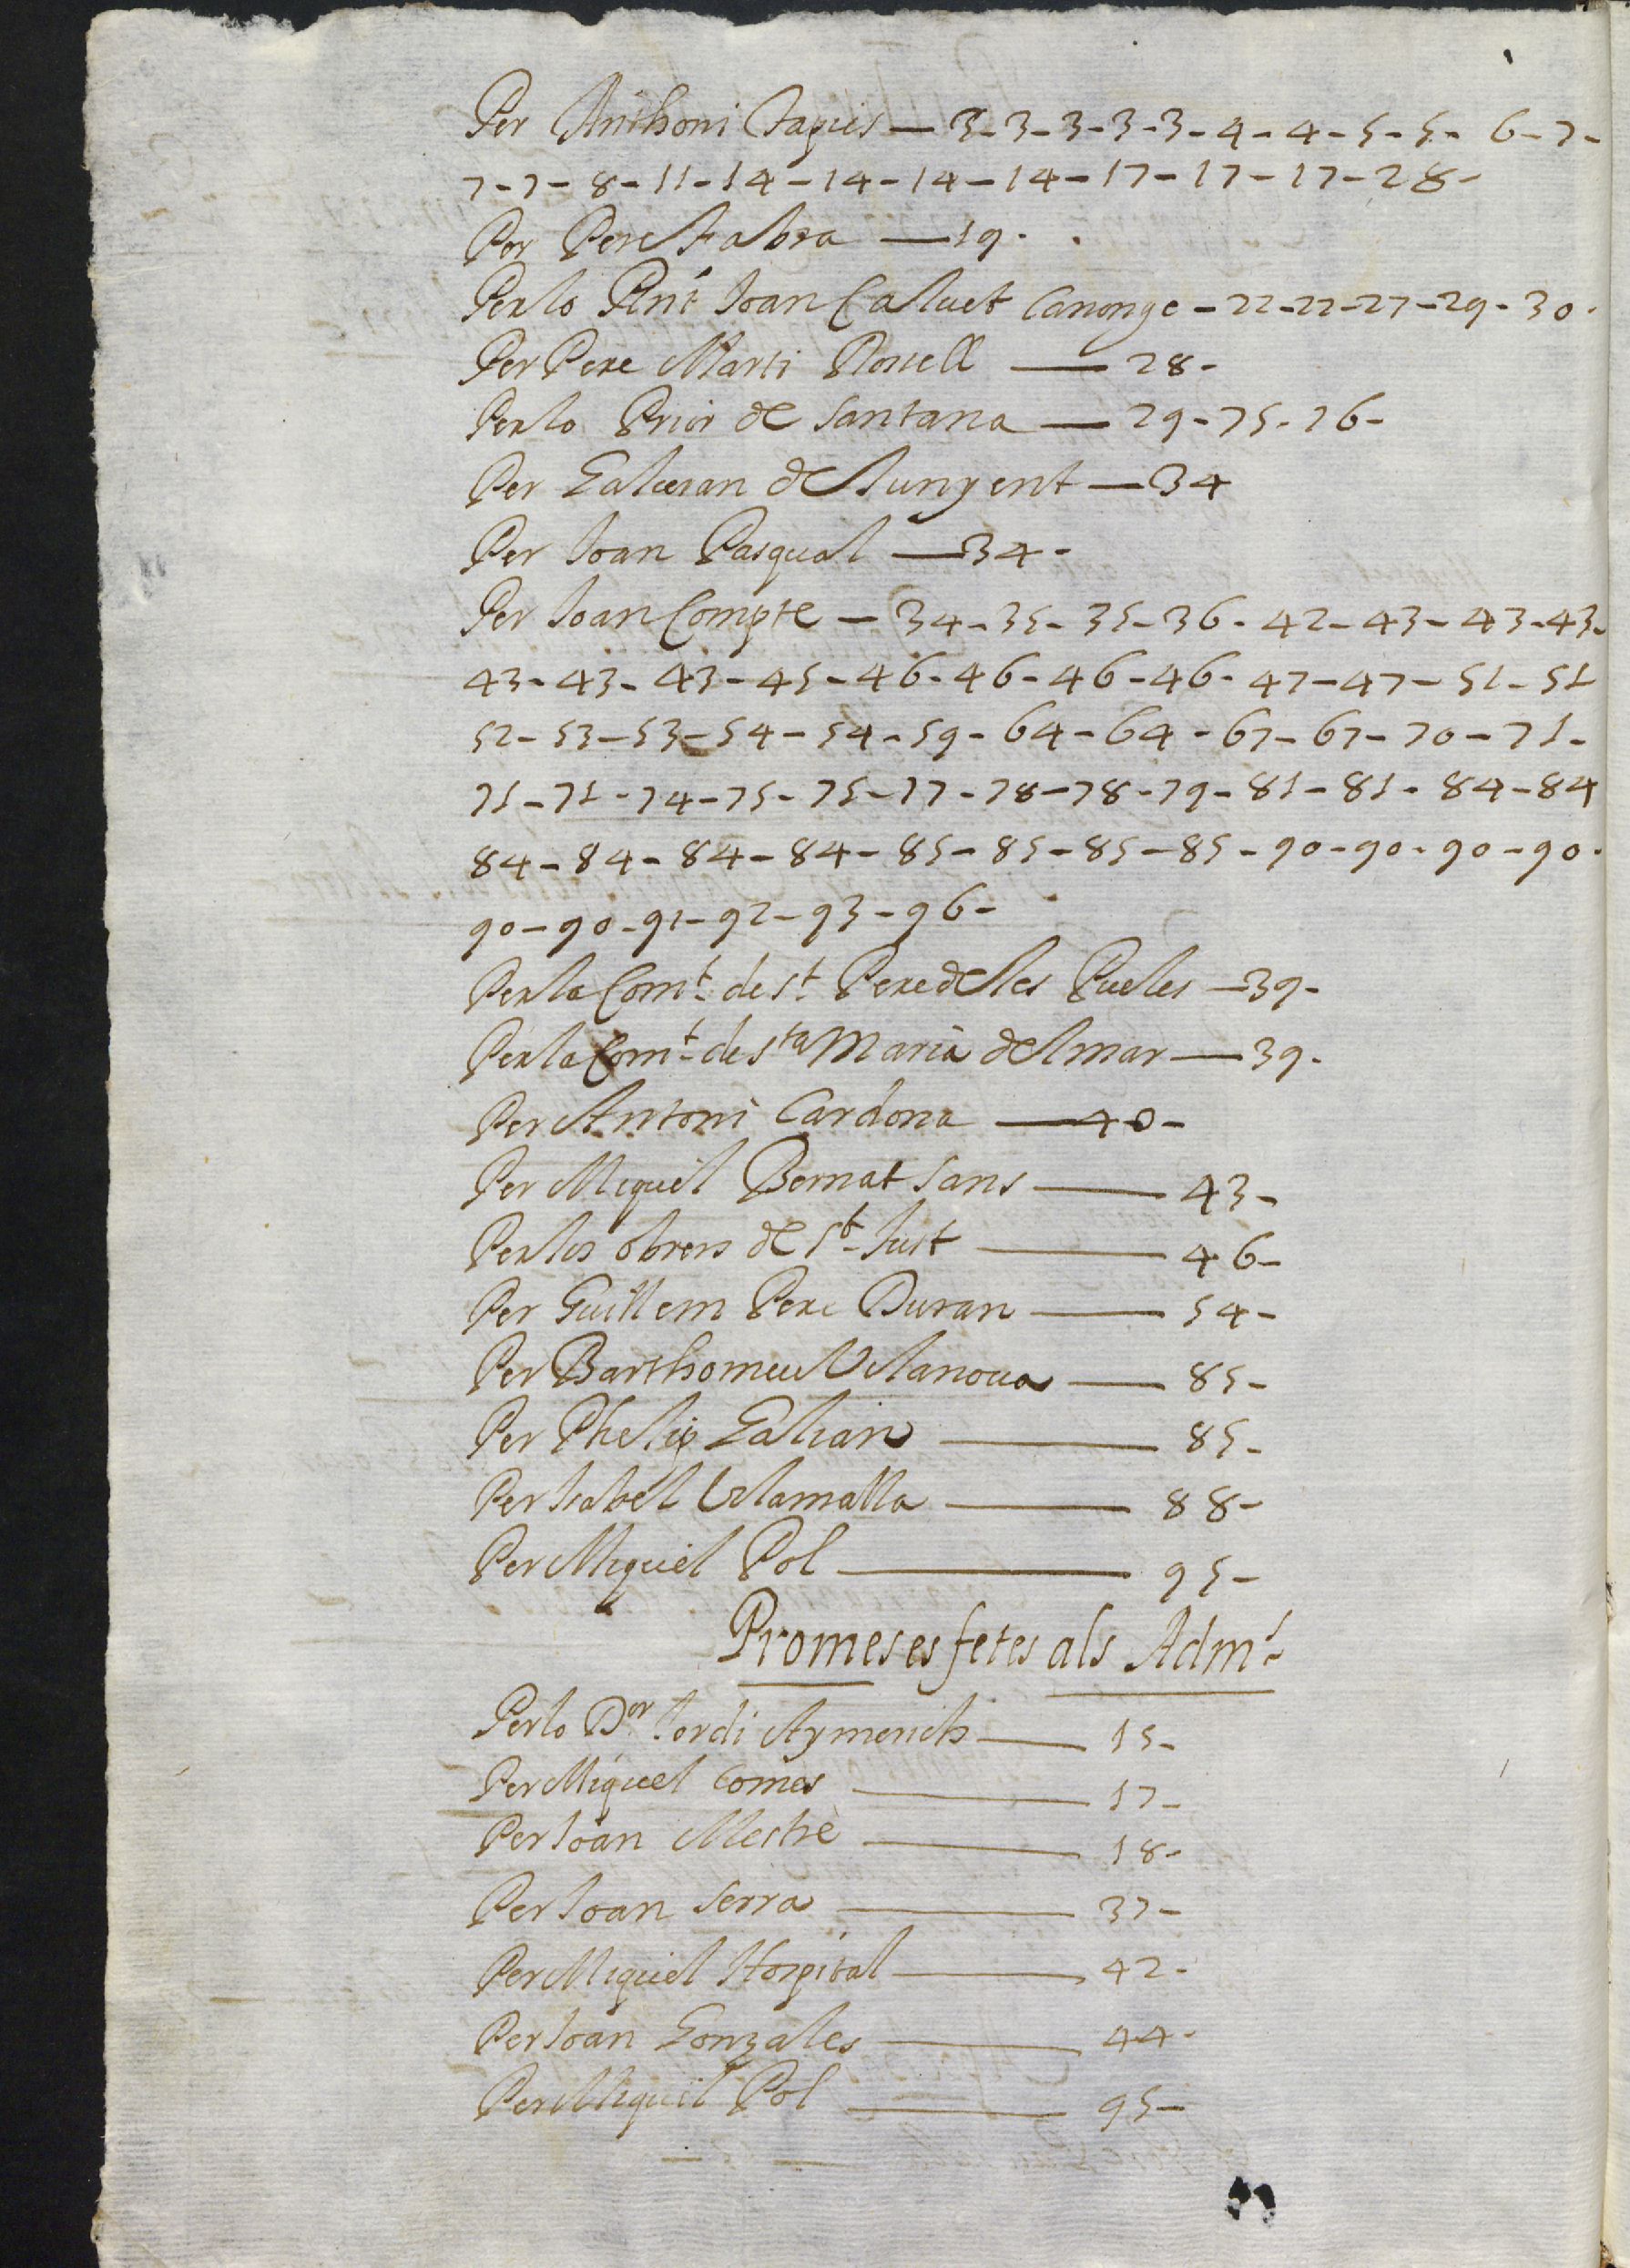 Per Anthoni Tapies — 3-3-3-3-3-4-4-5-5-6-7-
7-7-8-11-14-14-14-14-17-17-17-28-
Per Pere Fabra — 19-
Per lo Joan Calvet Canonge - 22-22-27-29-30-
Per Pere Marti Rossell — 28-
Per lo Prior de Santana — 29-75-76-
Per Galceran de Junyent — 34
Per Joan Pasqual — 34-
Per Joan Compte — 34-35-35-36-42-43-43-43-
43-43-43-45-46-46-46-46-47-47-51-51
52-53-53-54-54-59-64-64-67-67-70-71-
71-71-74-75-75-77-78-78-79-81-81-84-84
84-84-84-84-85-85-85-85-90-90-90-90-
90-90-91-92-93-96-
Per la Comt. de St. Pere de les Pueles — 39-
Per la Comt. de Sta Maria del mar — 39-
Per Antoni Cardona — 40-
Per Miquel Bernat Sans — 43-
Per los obrers de St. Just — 46-
Per Guillem Pere Duran — 54-
Per Barthomeu Vilanova — 85-
Per Phelip Galian — 85-
Per Isabel Vilamalla — 88-
Per Miquel Pol — 95-
Promeses fetes als Adms.
Per lo Dor. Jordi Aymerich — 15-
Per Miquel Comes — 17-
Per Joan Mestre — 18-
Per Joan Serra — 37-
Per Miquel Hospital — 42-
Per Joan Gonzales — 44-
Per Miquel Pol — 95-